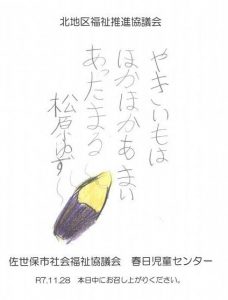 北地区福祉推進協議会
やきいもは
ほかほかあまい
あったまる
松原ゆず
佐世保市社会福祉協議会 春日児童センター
R7.11.28 本日中にお召し上がりください。